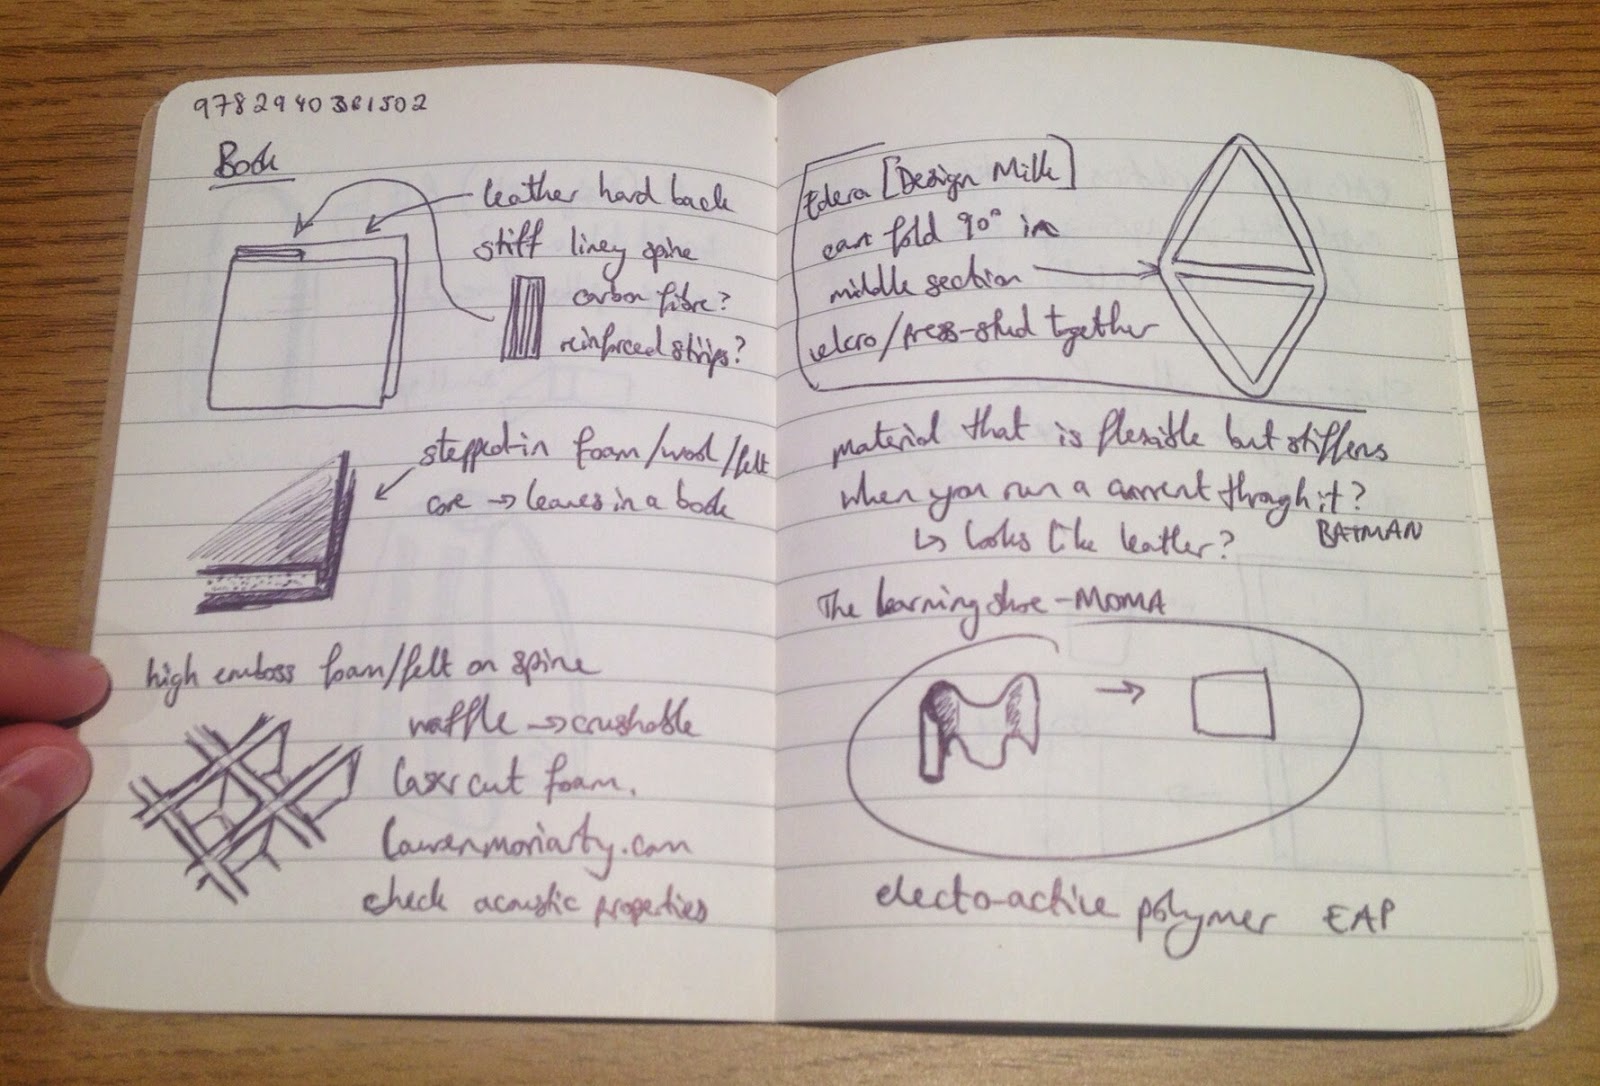 9782940361502
Book
leather hard back
stiff liney spine
carbon fibre?
reinforced strips?
stepped-in foam/wool/felt
core → leaves in a book
high emboss foam/felt on spine
waffle → crushable
laser cut foam.
laurenmoriarty.com
check acoustic properties
Edera [Design Milk]
can fold 90° in
middle section
velcro/press-stud together
material that is flexible but stiffens
when you run a current through it?
↳ looks like leather?
BATMAN
The learning shoe - MOMA
electo-active polymer EAP